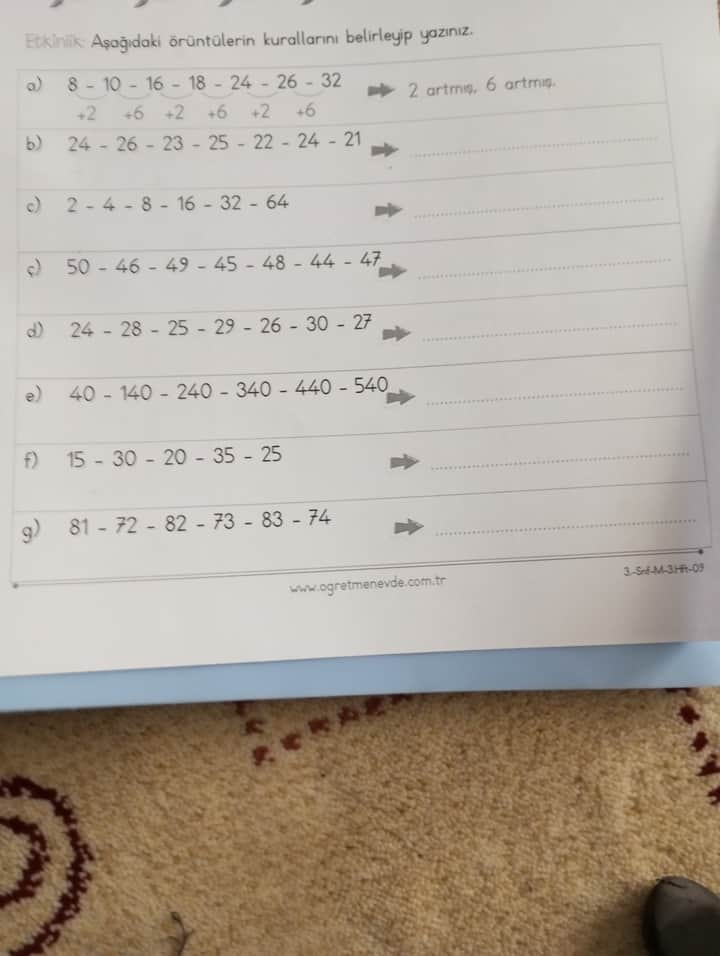 Etkinlik: Aşağıdaki örüntülerin kurallarını belirleyip yazınız.
a) 8 - 10 - 16 - 18 - 24 - 26 - 32 2 artmış, 6 artmış.
+2 +6 +2 +6 +2 +6
b) 24 - 26 - 23 - 25 - 22 - 24 - 21 ........................................
c) 2 - 4 - 8 - 16 - 32 - 64 ........................................
ç) 50 - 46 - 49 - 45 - 48 - 44 - 47 ........................................
d) 24 - 28 - 25 - 29 - 26 - 30 - 27 ........................................
e) 40 - 140 - 240 - 340 - 440 - 540 ........................................
f) 15 - 30 - 20 - 35 - 25 ........................................
g) 81 - 72 - 82 - 73 - 83 - 74 ........................................
www.ogretmenevde.com.tr
3.-Snf-M-3.Hft-09